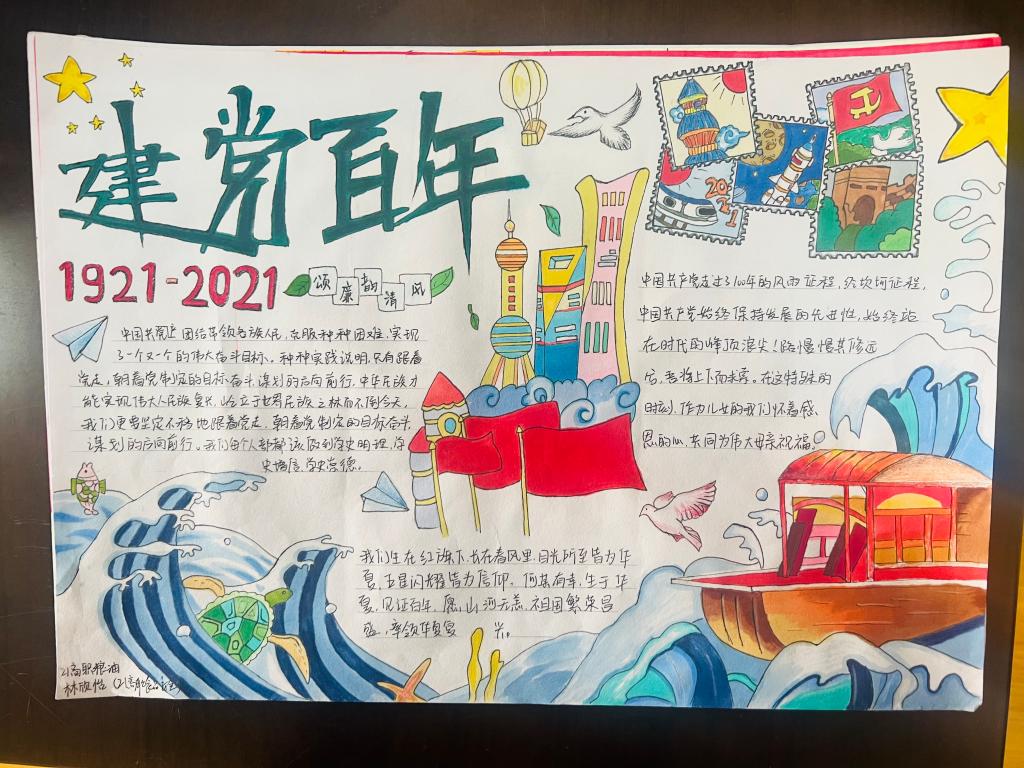 建党百年
1921-2021
颂廉韵清风
2021
中国共产党团结带领各族人民,克服种种困难,实现
了一个又一个的伟大奋斗目标。种种实践说明,只有跟着
党走,朝着党制定的目标奋斗谋划的方向前行,中华民族才
能实现伟大人民族复兴,屹立于世界民族之林而不倒今天,
我们更要坚定不移地跟着党走,朝着党制定的目标奋斗
谋划的方向前行。我们每个人都都该做到学史明理,学
史增信,学史崇德。
中国共产党走过了100年的风雨征程,
中国共产党始终保持发展的先进性,始终站
在时代的峰顶浪尖!路慢慢其修远
兮,吾将上下而求索。在这特殊的
时刻,作为儿女的我们怀着感
恩的心,共同为伟大母亲祝福!
我们生在红旗下,长在春风里,目光所至皆为华
夏,五星闪耀皆为信仰。何其有幸,生于华
夏,见证百年,愿山河无恙,祖国繁荣昌
盛,率领华夏复兴。
21高职粮油
林欣怡